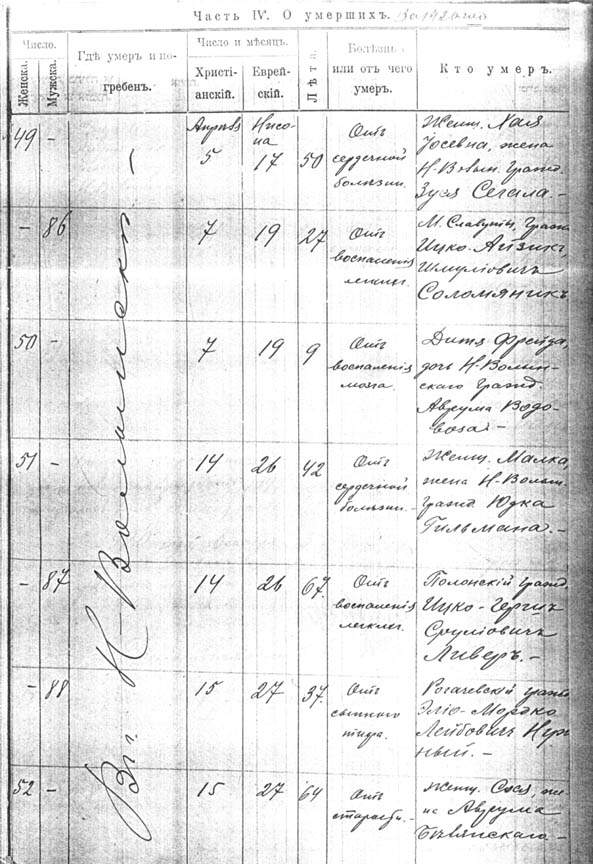 Часть IV. О умершихъ. За 1920 годъ
Число.
Женска.
Мужска.
Гдѣ умеръ и по-
гребенъ.
Число и мѣсяцъ.
Христі-
анскій.
Еврей-
скій.
Лѣта.
Болѣзнь
или отъ чего
умеръ.
Кто умеръ.
Въ Н-Волынскѣ
49 -
Апрѣль
5
Нисо-
на
17
50
Отъ
сердечной
болѣзни.
Женщ.
Іосевна, жена
Н-Волын. гражд.
Зуся Сегала. -
- 86
7
19
27
Отъ
воспаленія
легких.
М. Славуты, гражд.
Ицко-Айзикъ
Шмуліовичъ
Соломяникъ
50 -
7
19
9
Отъ
воспаленія
мозга.
Дитя Фрейда,
дочь Н-Волын-
скаго гражд.
Аврума Водо-
воза. -
51 -
14
26
42
Отъ
сердечной
болѣзни. -
Женщ. Малка,
жена Н-Волын.
гражд. Юдка
Гильмана. -
- 87
14
26
67.
Отъ
воспаленія
легких.
Полонскій гражд.
Ицко-Гершъ
Сруліовичъ
Ливеръ. -
- 88
15
27
37.
Отъ
сыпного
тифа.
Рогачевскій гражд.
Эліо-Мордко
Лейбовичъ
52 -
15
27
64
Отъ
старости. -
Женщ. Сося, же-
на Аврума